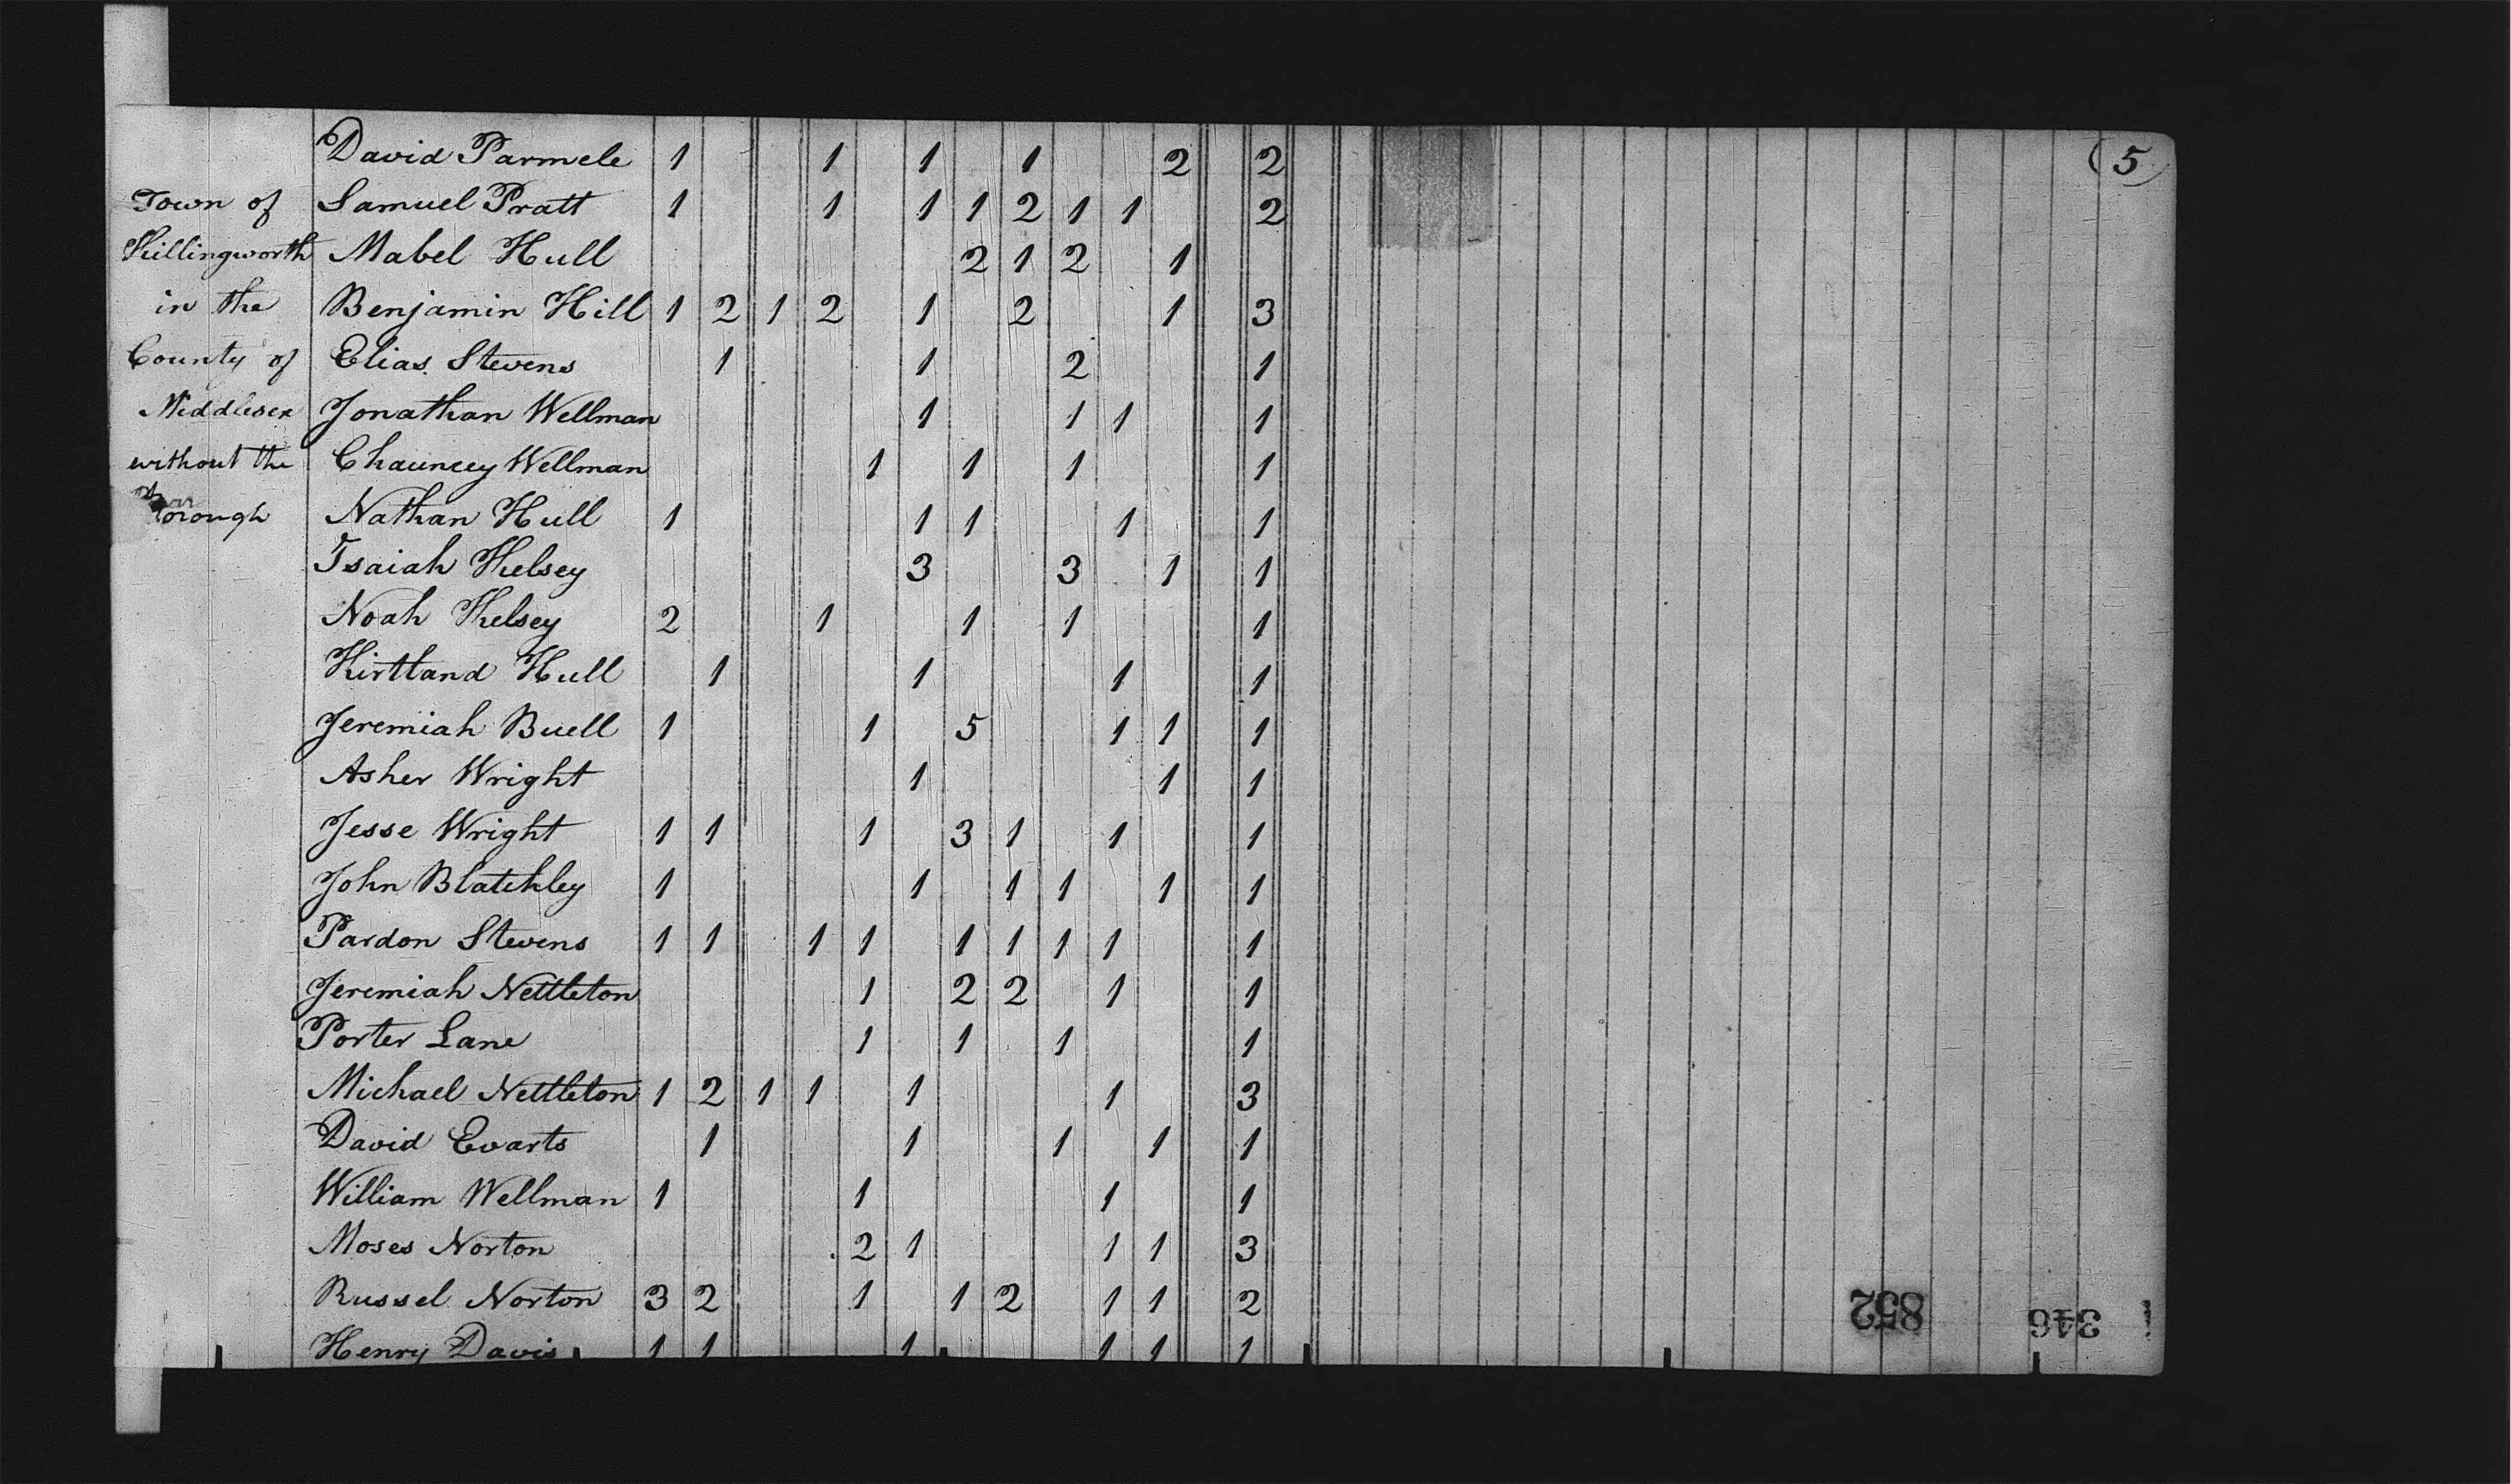 David Parmele 1 1 1 1 2 2 (5)
Town of Samuel Pratt 1 1 1 1 2 1 1 2
Killingworth Mabel Hull 2 1 2 1
in the Benjamin Hill 1 2 1 2 1 2 1 3
County of Elias Stevens 1 1 2 1
Middlesex Jonathan Wellman 1 1 1 1
without the Chauncey Wellman 1 1 1 1
borough Nathan Hull 1 1 1 1 1
Isaiah Kelsey 3 3 1 1
Noah Kelsey 2 1 1 1 1
Kirtland Hull 1 1 1 1
Jeremiah Buell 1 1 5 1 1 1
Asher Wright 1 1 1
Jesse Wright 1 1 1 3 1 1 1
John Blatchley 1 1 1 1 1 1
Pardon Stevens 1 1 1 1 1 1 1 1 1
Jeremiah Nettleton 1 2 2 1 1
Porter Lane 1 1 1 1
Michael Nettleton 1 2 1 1 1 1 3
David Evarts 1 1 1 1 1
William Wellman 1 1 1 1
Moses Norton 2 1 1 1 3
Russel Norton 3 2 1 1 2 1 1 2
Henry Davis 1 1 1 1 1 1
852
346